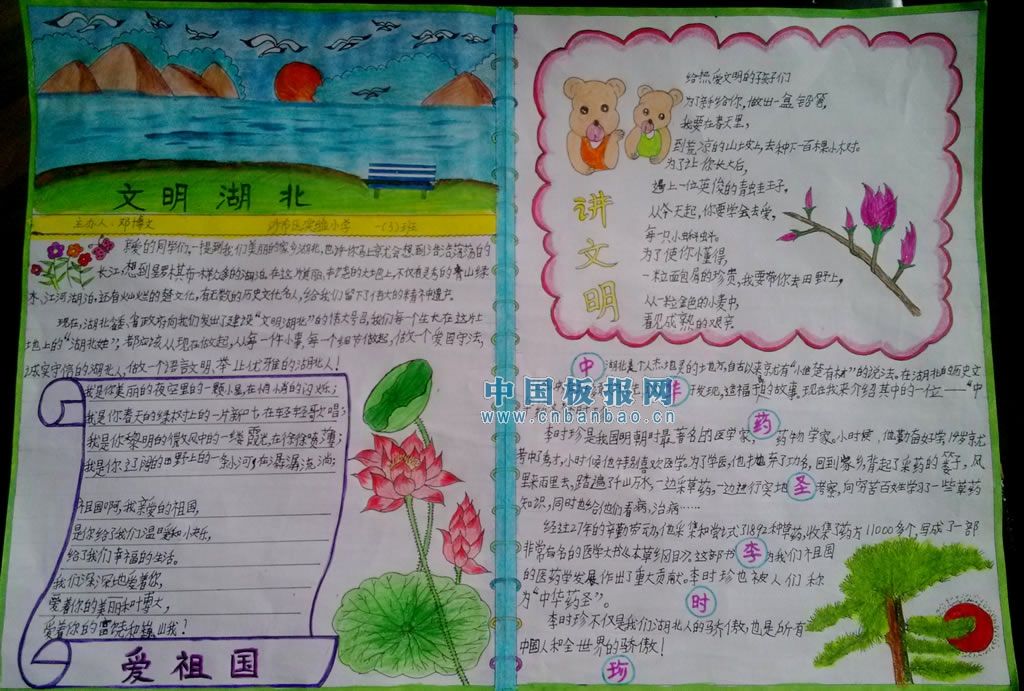 文明湖北
主办人:邓博文 沙市区实验小学 一(3)班
亲爱的同学们,一提到我们美丽的家乡湖北,也许你马上就会想到浩浩荡荡的
长江,想到星罗棋布一样众多的湖泊。在这片美丽、丰饶的大地上,不仅有灵秀的青山绿
水、江河湖泊,还有灿烂的楚文化,有无数的历史文化名人,给我们留下了伟大的精神遗产。
现在,湖北省委、省政府向我们发出了建设“文明湖北”的伟大号召,我们每个生长在这片土
地上的“湖北娃”,都应该从现在做起,从每一件小事,每一个细节做起,做一个爱国守法,
诚实守信的湖北人,做一个语言文明,举止优雅的湖北人!
我是你美丽的夜空里的一颗小星,在悄悄的闪烁;
我是你春天的绿枝上的一片新叶,在轻轻歌唱;
我是你黎明的微风中的一缕霞光,在徐徐喷薄;
我是你辽阔的田野上的一条小河,在潺潺流淌;
祖国啊,我亲爱的祖国,
是你给了我们温暖和快乐,
给了我们幸福的生活。
我们深深地爱着你,
爱着你的美丽和博大,
爱着你的富饶和雄
爱祖国
给热爱文明的孩子们
为了
我要在春天里,
到荒凉的山坡上,去种下一百棵小树。
为了让你长大后,
遇上一位英俊的青蛙王子。
从今天起,你要学会去爱,
每一只小蝌蚪。
为了使你懂得,
一粒面包屑的珍贵,我要带你去田野上。
从一粒金色的小麦中,
看见成熟的艰辛
讲文明
湖北是个人杰地灵的土地,自古以来就有“惟楚有材”的说法。在湖北的历史文
发现,这福
故事,现在我来介绍其中的一位——“中
中国板报网
www.cnbanbao.cn
李时珍是我国明朝时最著名的医学家,药物学家。小时候,他勤奋好学,
小时候他特别喜欢医学。为了学医,他抛弃了功名,回到家乡,背起了采药的篓子,风
里来雨里去,踏遍了千山万水,一边采草药,一边进行实地考察,向穷苦百姓学习了一些草药
知识,同时也给他们看病,治病……
经过27年的辛勤劳动,他采集和尝试了1892种草药,收集了药方11000多个,写成了一部
非常有名的医学大书《本草纲目》。这部书为我们祖国
的医药学发展作出了重大贡献。李时珍也被人们称
为“中华药圣”。
李时珍不仅是我们湖北人的骄傲,也是所有
中国人和全世界的骄傲!
中
华
药
圣
李
时
珍